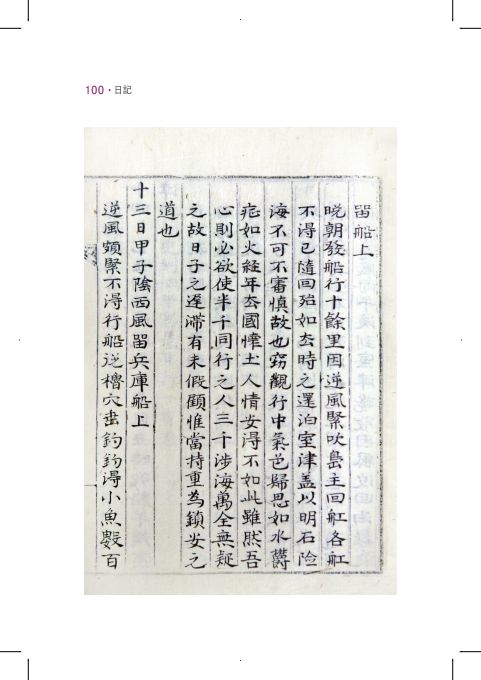 100 · 日記
留船上
晩朝發船行十餘里因逆風緊吹島主回舡各舡
不得已隨回殆如去時之還泊室津盖以明石險
海不可不審慎故也竊觀行中氣色歸思如水欝
症如火經年去國懷土人情安得不如此雖然吾
心則必欲使半千同行之人三千涉海萬全無疑
之故日子之遅滯有未假顧惟當持重為鎮安之
道也
十三日甲子陰西風留兵庫船上
逆風頗緊不得行船從櫓穴垂釣釣得小魚數百